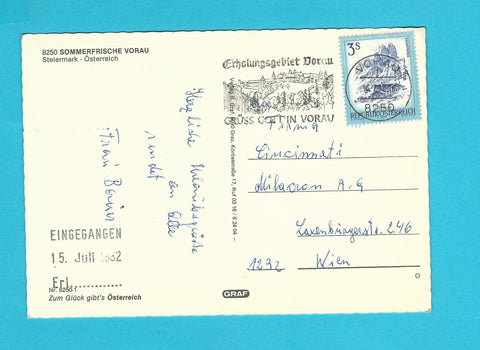 8250 SOMMERFRISCHE VORAU
Steiermark - Österreich
Erholungsgebiet Vorau
GRÜSS GOTT IN VORAU
3 S
REPUBLIK ÖSTERREICH
VORAU
8250
Herzliche Urlaubsgrüße
an Alle
sendet
Frau Bauer
EINGEGANGEN
15. Juli 1982
Erl............
Nr. 8250-1
Zum Glück gibt's Österreich
Graz, Körösistraße 17, Ruf 03 16 / 6 24 04
GRAF
Firma
Cincinnati
Milacron A.G
Laxenburgerstr. 246
1232 Wien